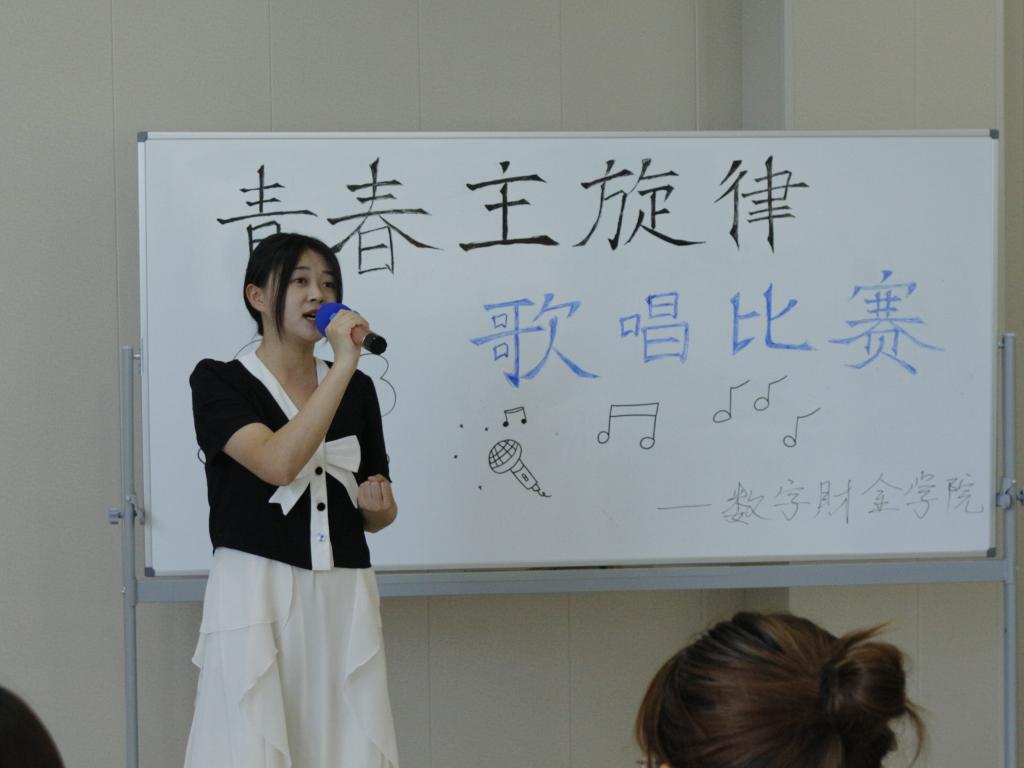 青春主旋律
歌唱比赛
—数字財金学院